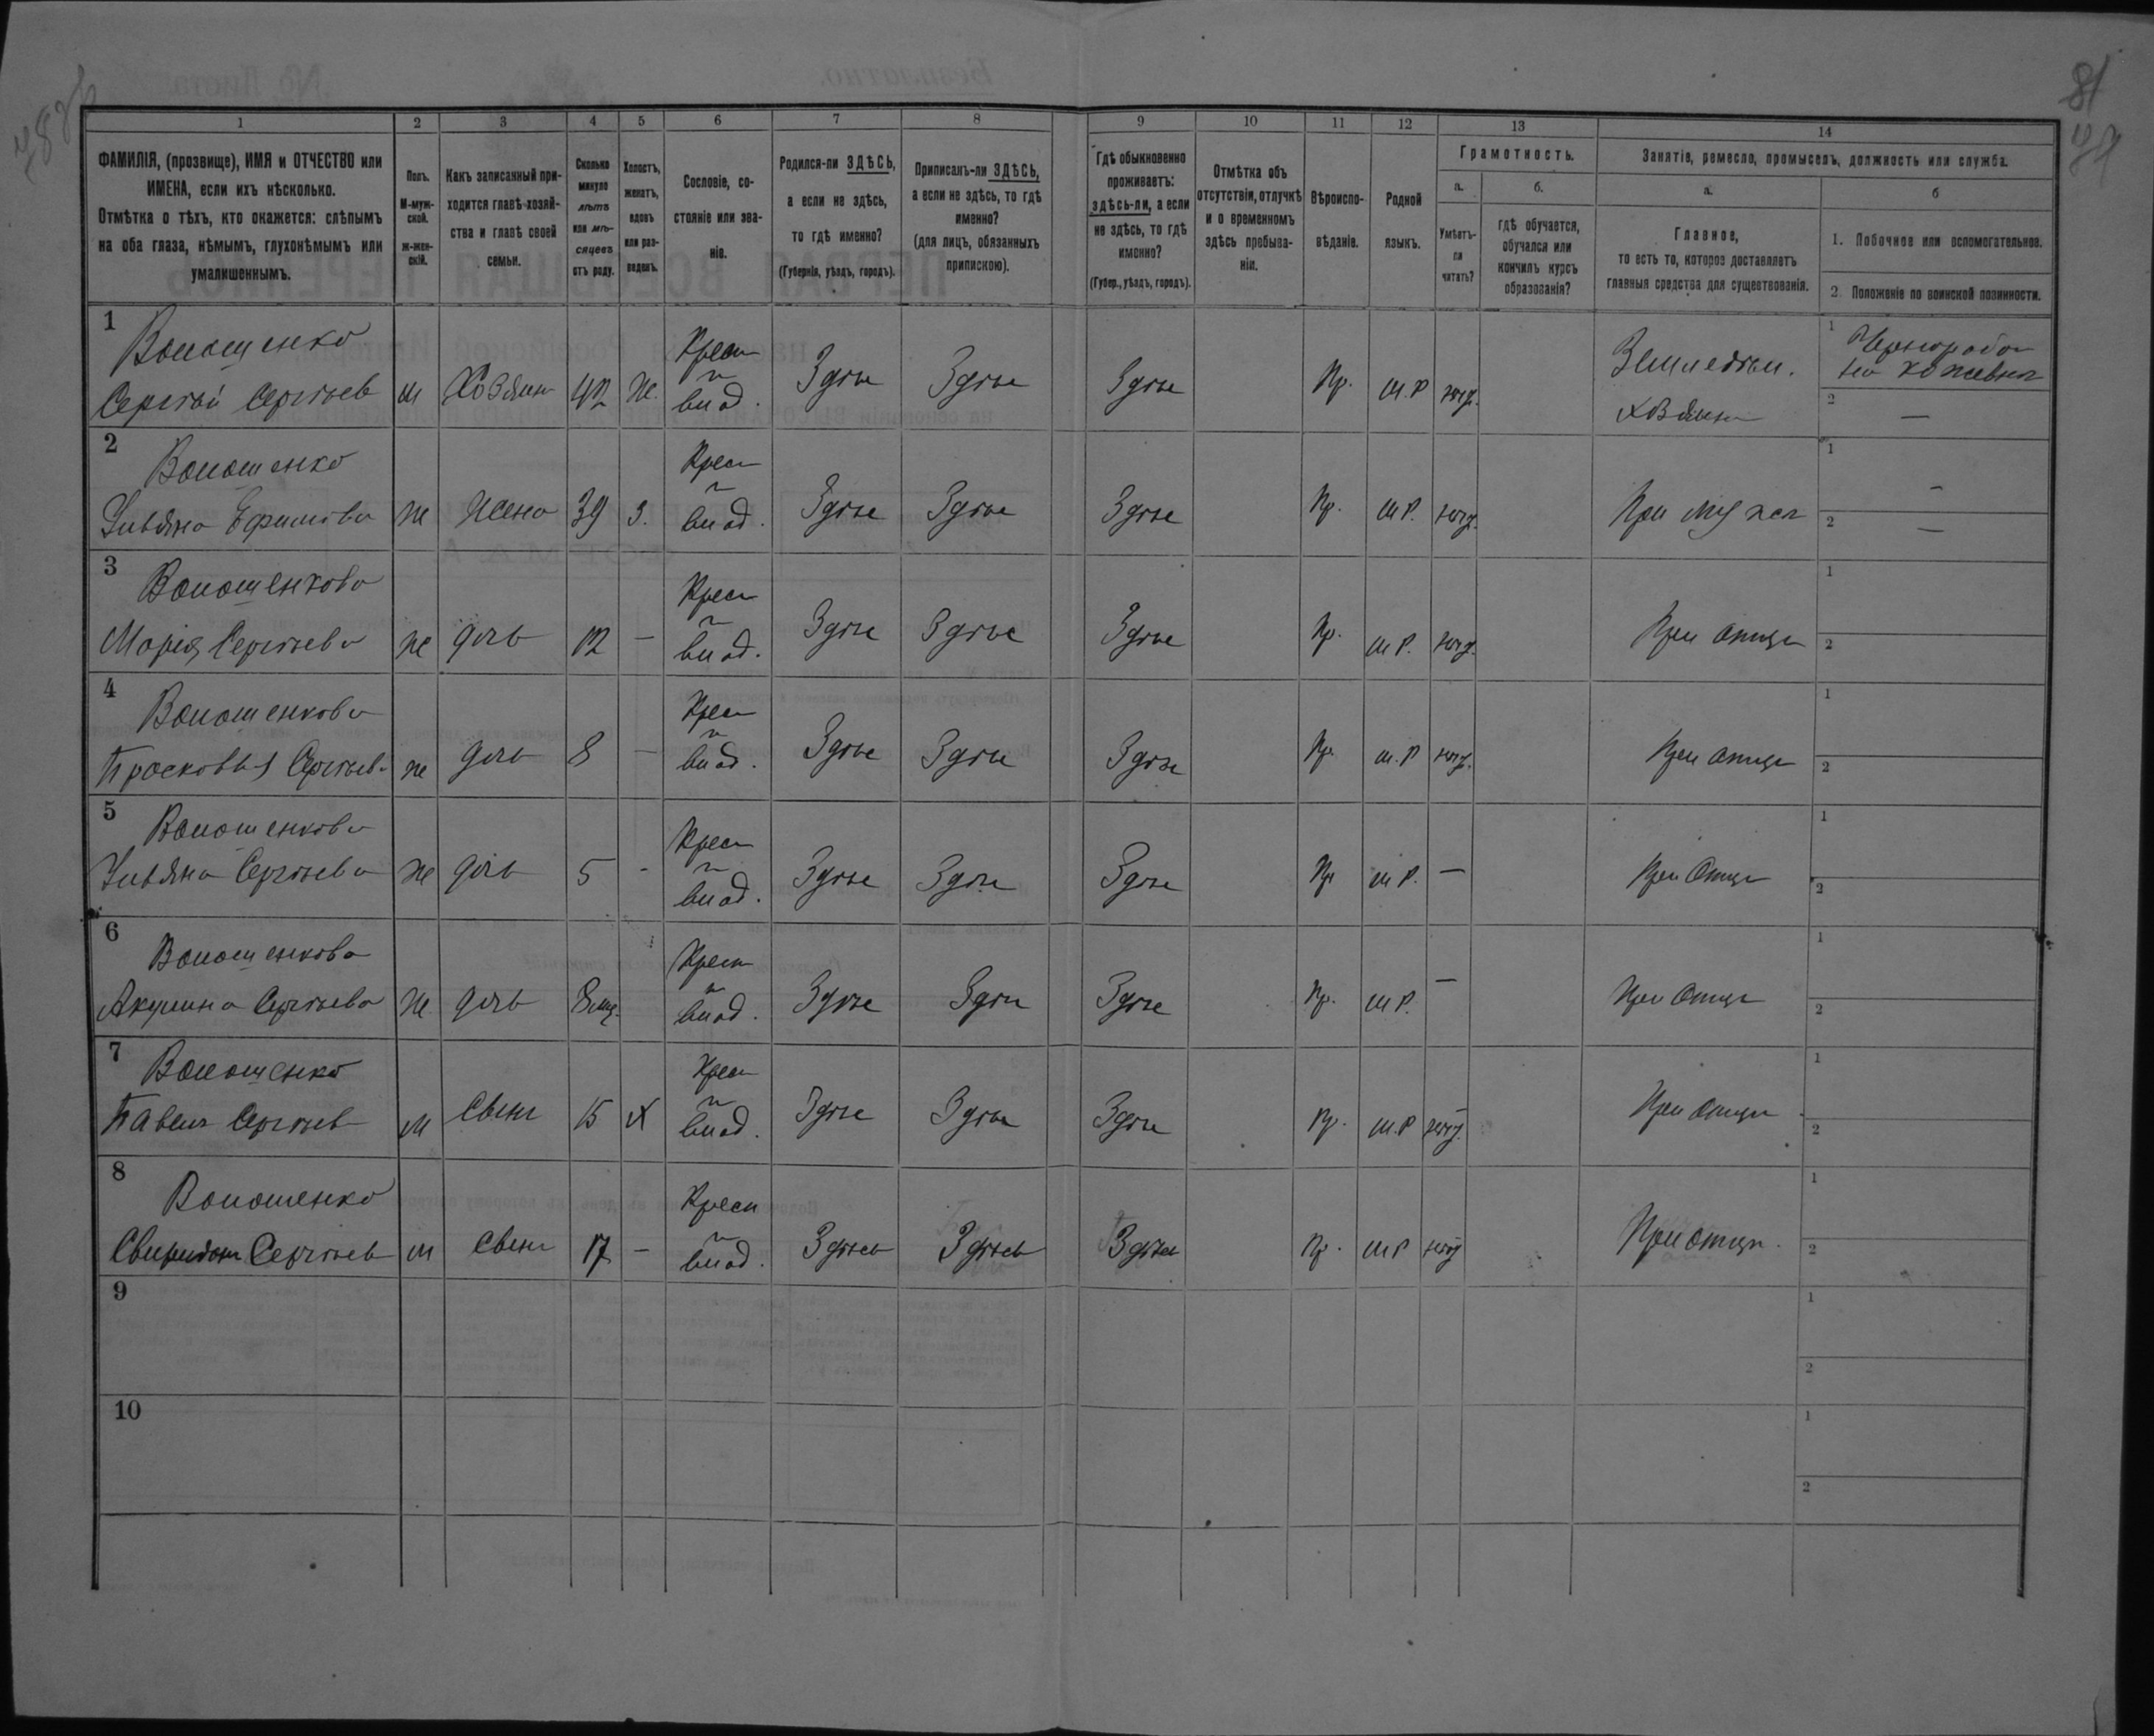 81
1 2 3 4 5 6 7 8 9 10 11 12 13 14
ФАМИЛІЯ, (прозвище), ИМЯ и ОТЧЕСТВО или
ИМЕНА, если ихъ нѣсколько.
Отмѣтка о тѣхъ, кто окажется: слѣпымъ
на оба глаза, нѣмымъ, глухонѣмымъ или
умалишеннымъ.
Полъ.
М-муж-
ской.
ж-жен-
скій.
Какъ записанный при-
ходится главѣ хозяй-
ства и главѣ своей
семьи.
Сколько
минуло
лѣтъ
или мѣ-
сяцевъ
отъ роду.
Холостъ,
женатъ,
вдовъ
или раз-
веденъ.
Сословіе, со-
стояніе или зва-
ніе.
Родился-ли ЗДѢСЬ,
а если не здѣсь,
то гдѣ именно?
(Губернія, уѣздъ, городъ).
Приписанъ-ли ЗДѢСЬ,
а если не здѣсь, то гдѣ
именно?
(для лицъ, обязанныхъ
припискою).
Гдѣ обыкновенно
проживаетъ:
здѣсь-ли, а если
не здѣсь, то гдѣ
именно?
(Губер., уѣздъ, городъ).
Отмѣтка объ
отсутствіи, отлучкѣ
и о временномъ
здѣсь пребыва-
ніи.
Вѣроиспо-
вѣданіе.
Родной
языкъ.
Грамотность.
а.
Умѣетъ-
ли
читать?
б.
гдѣ обучается,
обучался или
кончилъ курсъ
образованія?
Занятіе, ремесло, промыселъ, должность или служба.
а.
Главное,
то есть то, которое доставляетъ
главныя средства для существованія.
б
1. Побочное или вспомогательное.
2. Положеніе по воинской повинности.
1 Волошенко Крест
Сергѣй Сергѣев м Хозяин 42 Ж. влад. Здѣсь Здѣсь Здѣсь Пр. М.Р Земледѣл. 1
Хозяин 2 —
2 Волошенко Крест
Ульяна Ефимова ж Жена 39 З. влад. Здѣсь Здѣсь Здѣсь Пр. М.Р. При мужѣ 1 — 2 —
3 Волошенкова Крест
Марія Сергѣева ж дочь 12 — влад. Здѣсь Здѣсь Здѣсь Пр. М.Р. При отцѣ 1 2
4 Волошенкова Крест
Просковья Сергѣев ж дочь 8 — влад. Здѣсь Здѣсь Здѣсь Пр. М.Р При отцѣ 1 2
5 Волошенкова Крест
Ульяна Сергѣева ж дочь 5 - влад. Здѣсь Здѣсь Здѣсь Пр М.Р. — При Отцѣ 1 2
6 Волошенкова Крест
Акулина Сергѣева ж дочь 8 мц. влад. Здѣсь Здѣсь Здѣсь Пр. М.Р. — При Отцѣ 1 2
7 Волошенко Крест
Павелъ Сергѣев м Сынъ 15 Х влад. Здѣсь Здѣсь Здѣсь Пр. М.Р При отцѣ 1 2
8 Волошенко Крест
Свиридон Сергѣев м Сынъ 17 — влад. Здѣсь Здѣсь Здѣсь Пр. М.Р При отцѣ. 1 2
9 1 2
10 1 2